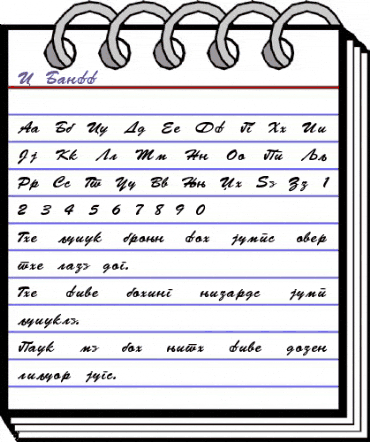 Ц Банфф
Аа Бб Цц Дд Ее Фф Г Хх Ии
Јј Кк Лл Мм Нн Оо Пп Љљ
Рр Сс Тт Уу Вв Њњ Џх Ѕѕ Зз 1
2 3 4 5 6 7 8 9 0
Тхе љуицк бронњ фох јумпс овер
тхе лазѕ дог.
Тхе фиве бохинг низардс јумп
љуицклѕ.
Пацк мѕ бох њитх фиве дозен
лиљуор југс.